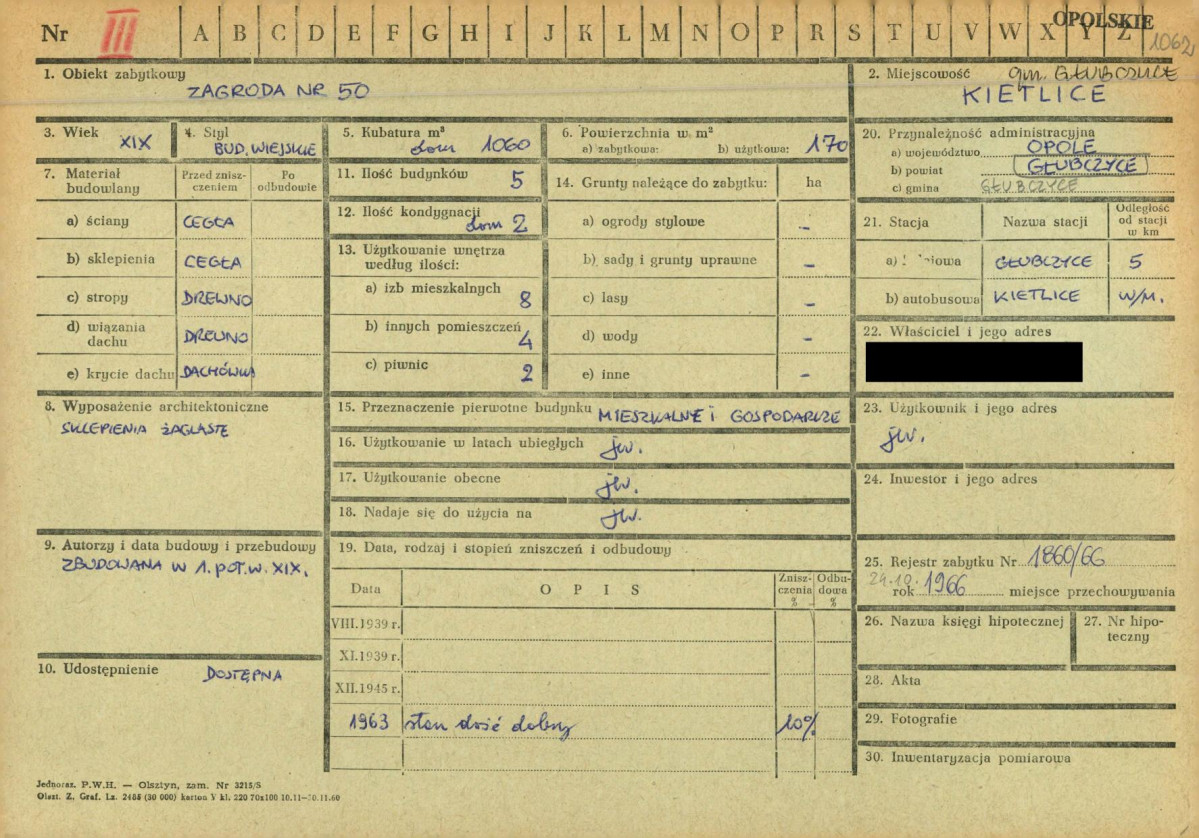 Nr III A B C D E F G H I J K L M N O P R S T U V W X Y Z OPOLSKIE
1062
1. Obiekt zabytkowy
ZAGRODA NR 50
2. Miejscowość gm. GŁUBCZYCE
KIETLICE
3. Wiek
XIX
4. Styl
BUD. WIEJSKIE
5. Kubatura m³
dom 1060
6. Powierzchnia w m²
a) zabytkowa: b) użytkowa: 170
20. Przynależność administracyjna
a) województwo OPOLE
b) powiat GŁUBCZYCE
c) gmina GŁUBCZYCE
7. Materiał budowlany
Przed zniszczeniem
Po odbudowie
a) ściany CEGŁA
b) sklepienia CEGŁA
c) stropy DREWNO
d) wiązania dachu DREWNO
e) krycie dachu DACHÓWKA
11. Ilość budynków 5
12. Ilość kondygnacji dom 2
13. Użytkowanie wnętrza
według ilości:
a) izb mieszkalnych 8
b) innych pomieszczeń 4
c) piwnic 2
14. Grunty należące do zabytku: ha
a) ogrody stylowe –
b) sady i grunty uprawne –
c) lasy –
d) wody –
e) inne –
21. Stacja Nazwa stacji Odległość od stacji w km
a) GŁUBCZYCE 5
b) autobusowa KIETLICE W/M.
22. Właściciel i jego adres
8. Wyposażenie architektoniczne
SKLEPIENIA ŻAGLASTE
15. Przeznaczenie pierwotne budynku MIESZKALNE i GOSPODARCZE
16. Użytkowanie w latach ubiegłych jw.
17. Użytkowanie obecne jw.
18. Nadaje się do użycia na jw.
23. Użytkownik i jego adres
jw.
24. Inwestor i jego adres
9. Autorzy i data budowy i przebudowy
ZBUDOWANA W 1. POŁ. W. XIX.
19. Data, rodzaj i stopień zniszczeń i odbudowy
Data OPIS Zniszczenia % Odbudowa %
VIII.1939 r.
XI.1939 r.
XII.1945 r.
1963 stan dość dobry 10%
25. Rejestr zabytku Nr 1860/66
29.10. rok 1966 miejsce przechowywania
26. Nazwa księgi hipotecznej
27. Nr hipoteczny
28. Akta
29. Fotografie
30. Inwentaryzacja pomiarowa
10. Udostępnienie DOSTĘPNA
Jednoraz. P.W.H. — Olsztyn, zam. Nr 3215/S
Olszt. Z. Graf. Lz. 2485 (30 000) karton V kl. 220 70x100